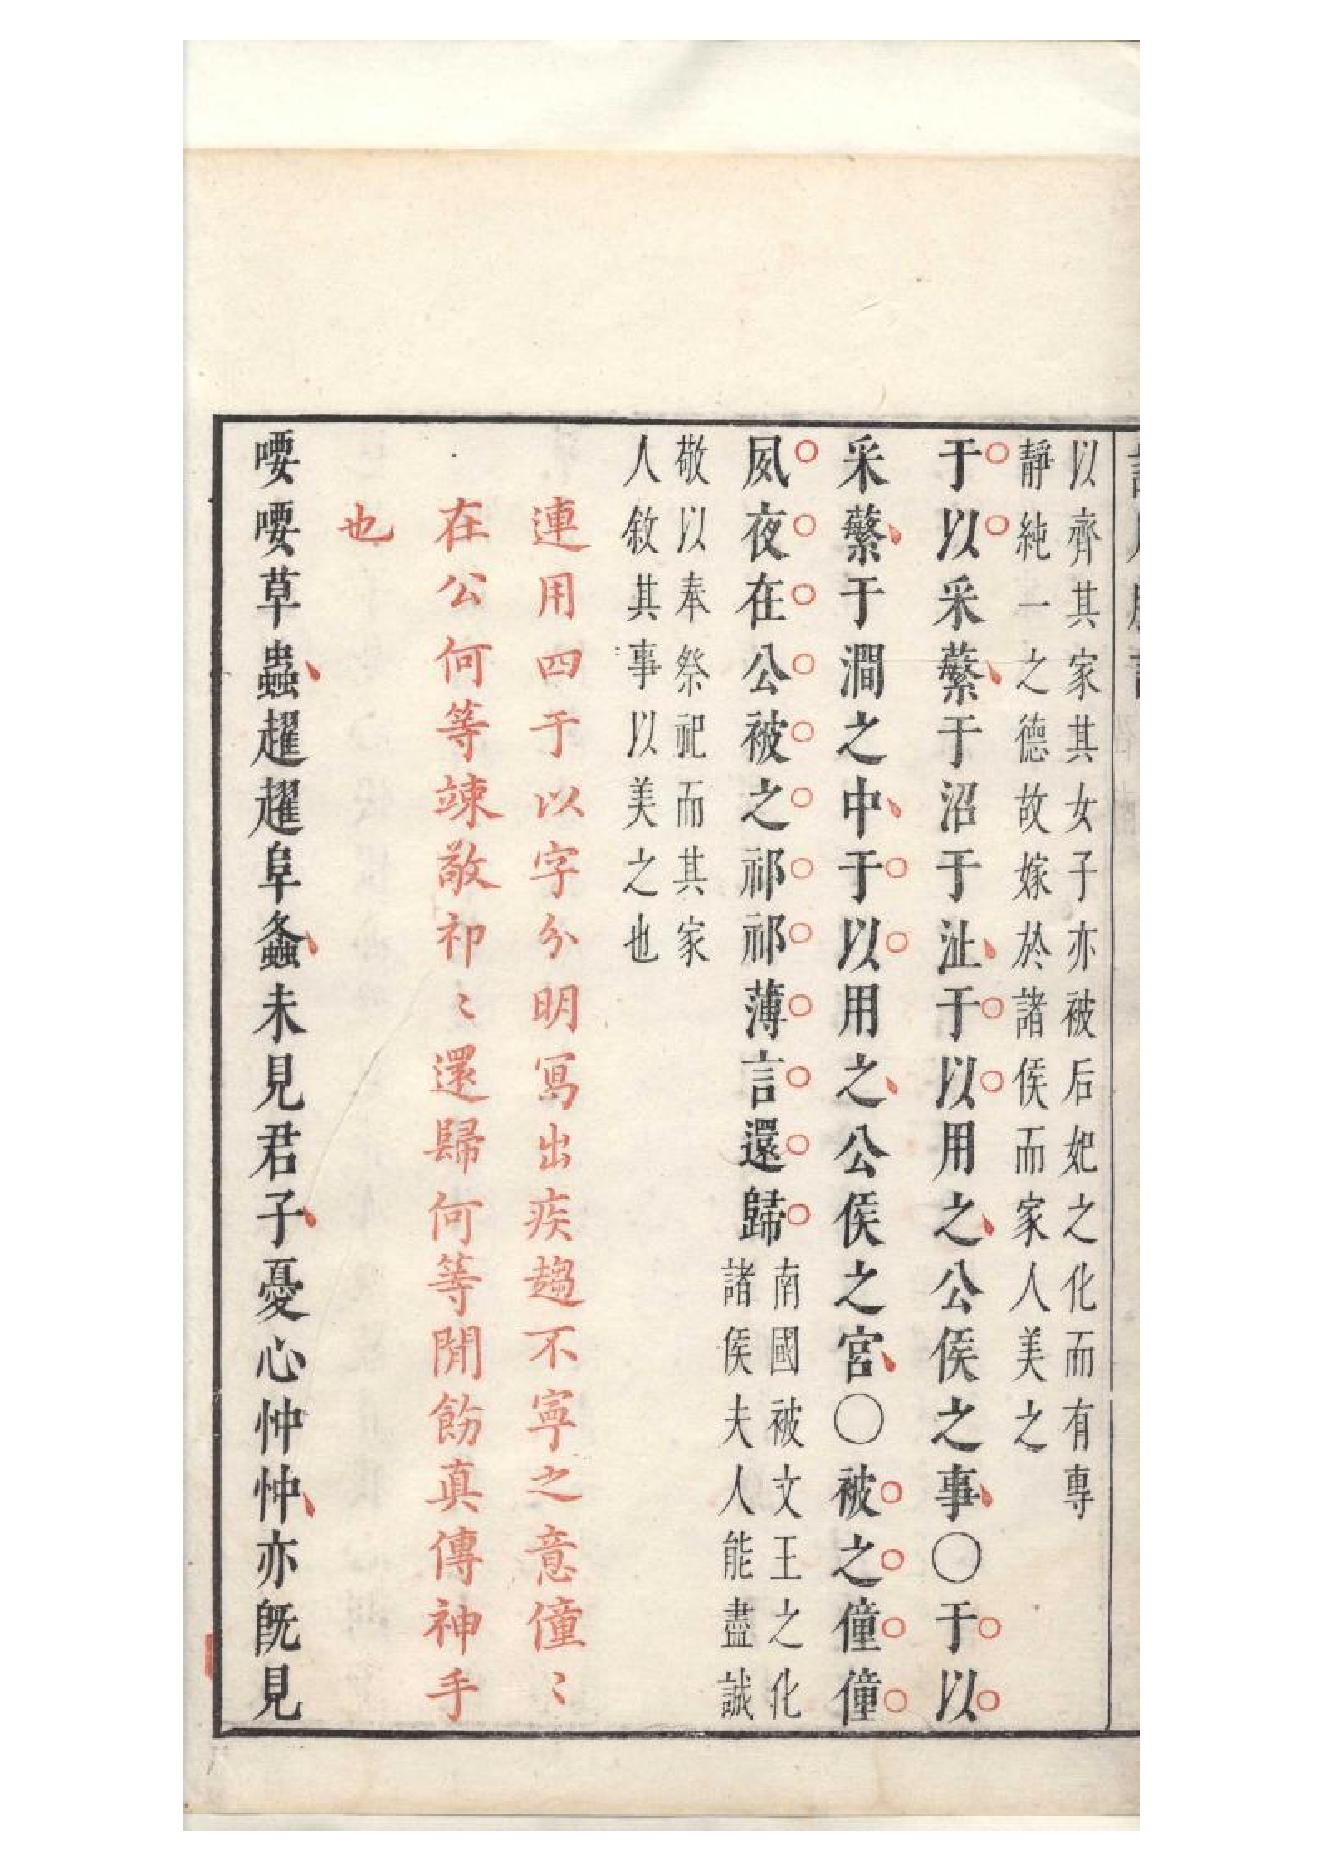 以齊其家其女子亦被后妃之化而有專
靜純一之德故嫁於諸侯而家人美之
于以采蘩于沼于沚于以用之公侯之事〇于以
采蘩于澗之中于以用之公侯之宮〇被之僮僮
夙夜在公被之祁祁薄言還歸
南國被文王之化
諸侯夫人能盡誠
敬以奉祭祀而其家
人敘其事以美之也
連用四于以字分明寫出疾趨不寧之意僮〻
在公何等竦敬祁〻還歸何等閒飭真傳神手
也
喓喓草蟲趯趯阜螽未見君子憂心忡忡亦旣見